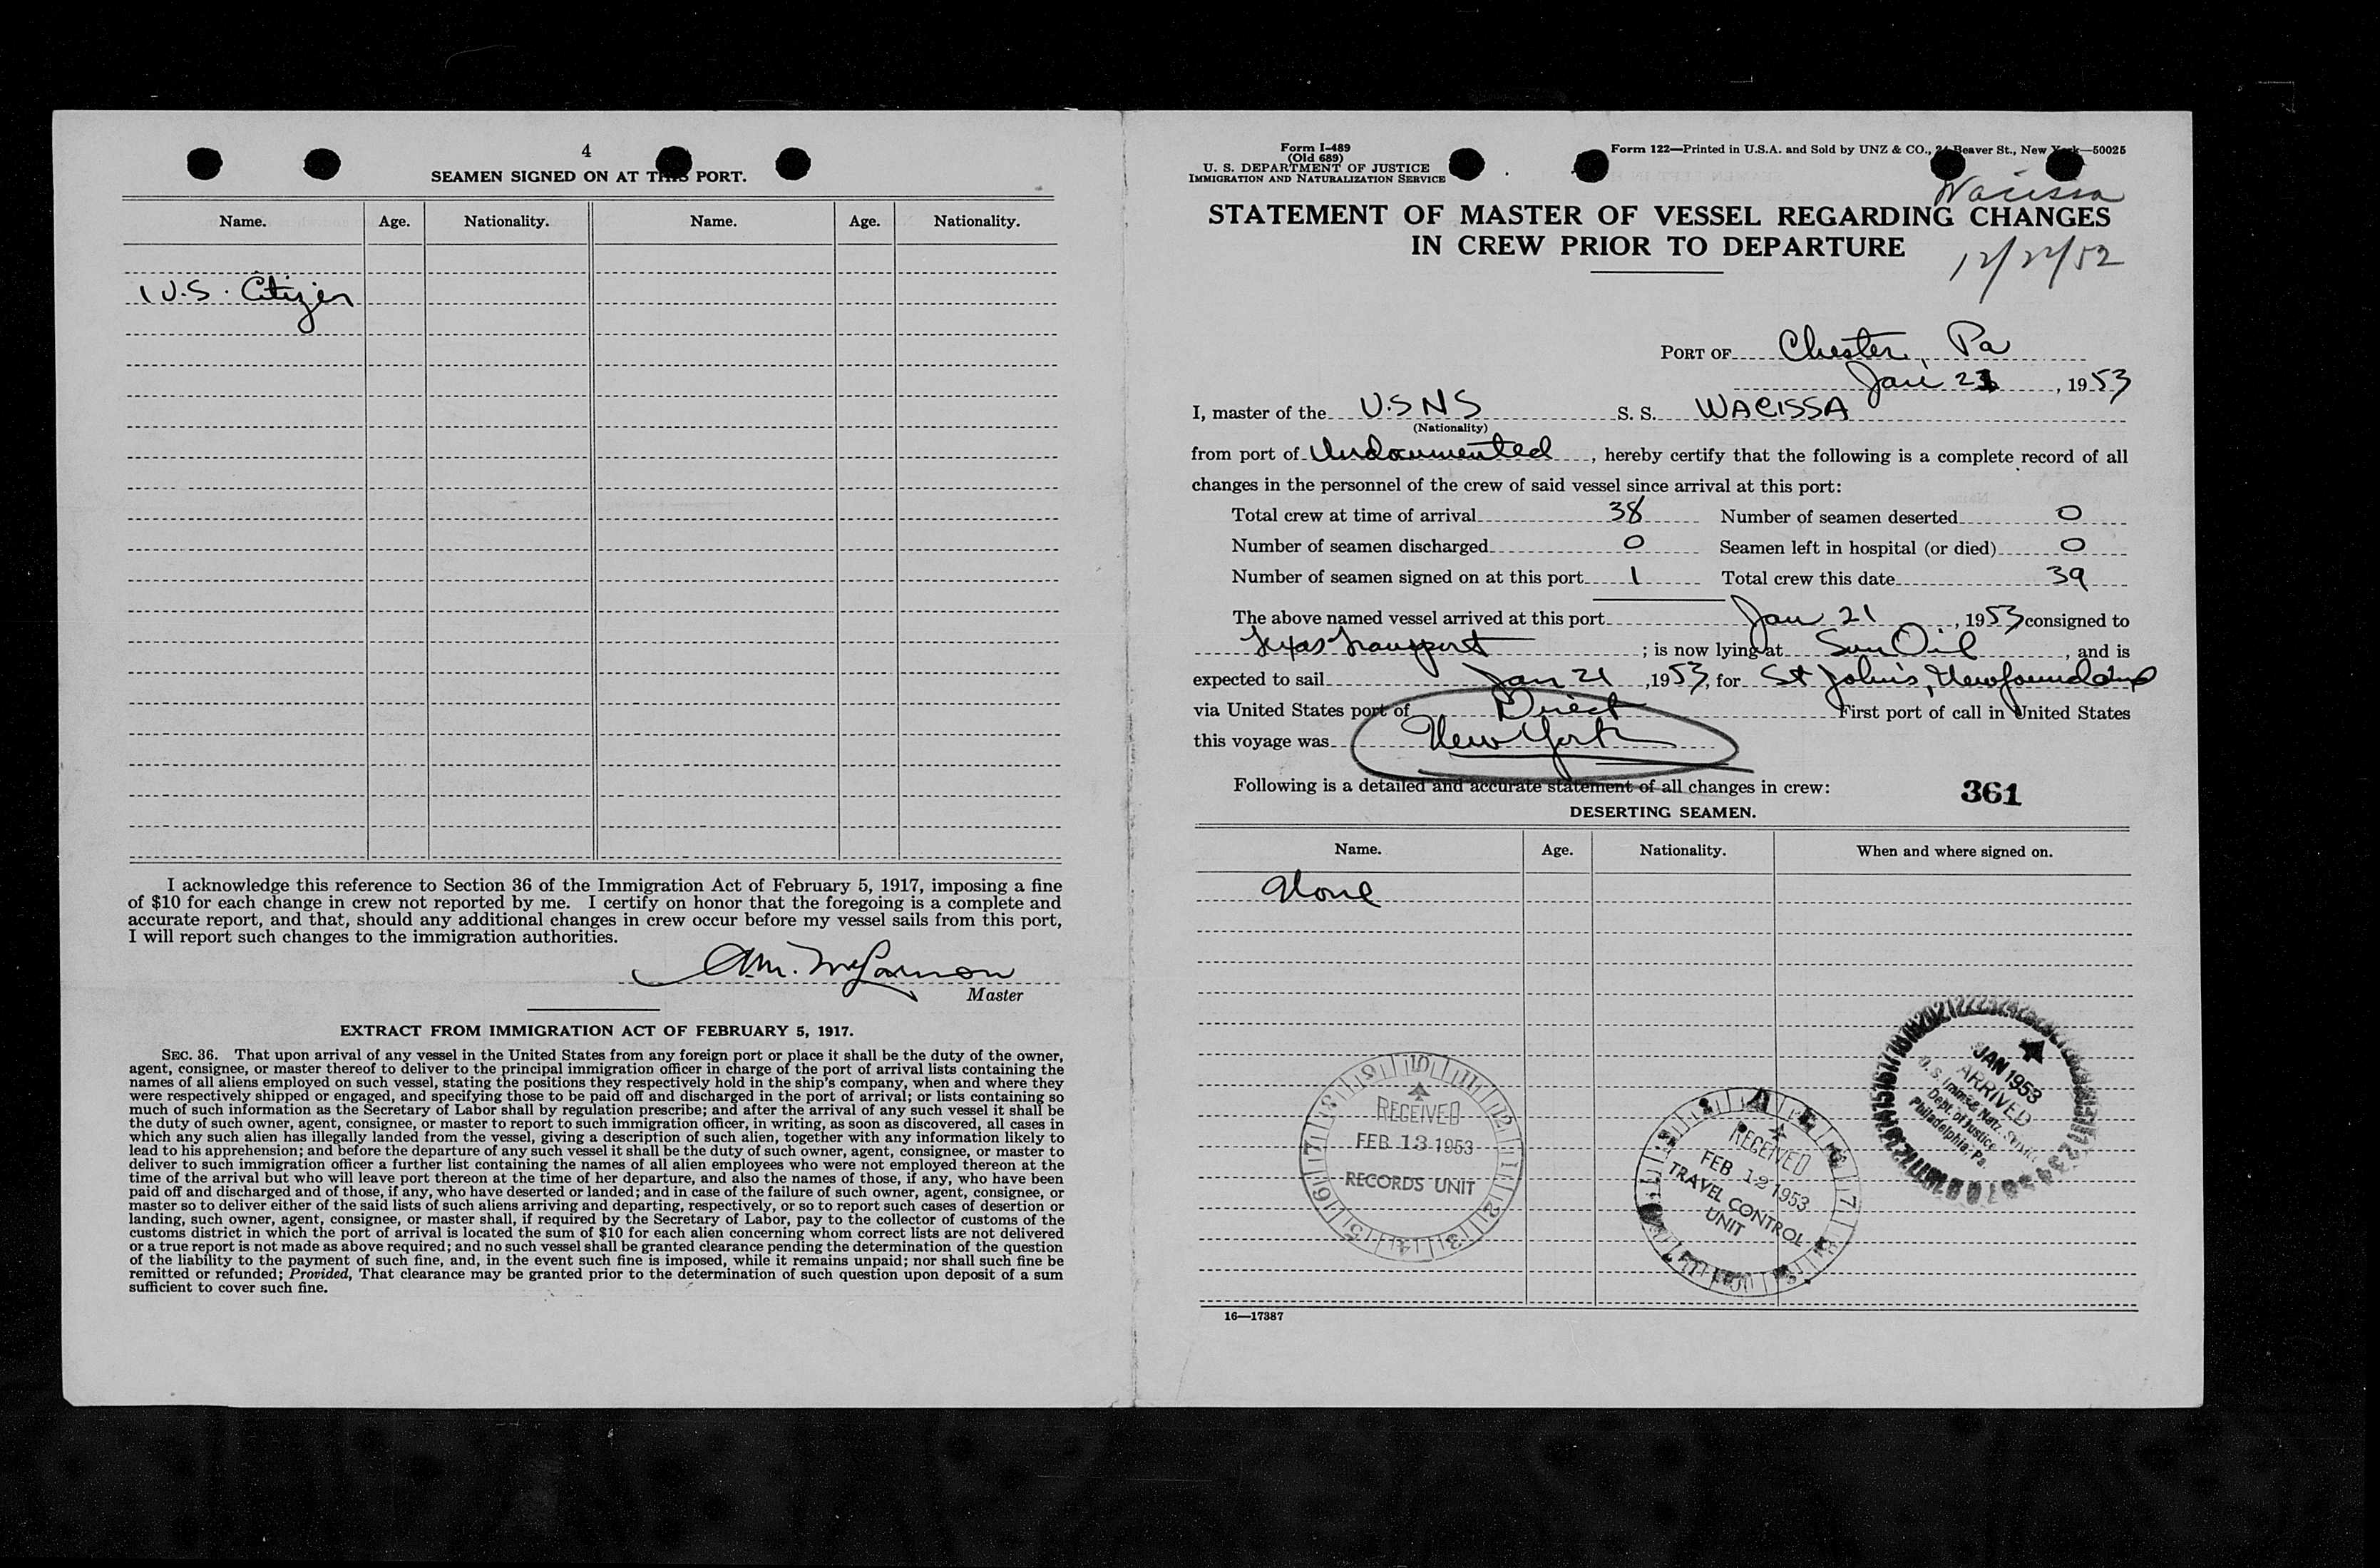 4
SEAMEN SIGNED ON AT THIS PORT.
Name. Age. Nationality. Name. Age. Nationality.
1 U.S. Citizen
I acknowledge this reference to Section 36 of the Immigration Act of February 5, 1917, imposing a fine
of $10 for each change in crew not reported by me. I certify on honor that the foregoing is a complete and
accurate report, and that, should any additional changes in crew occur before my vessel sails from this port,
I will report such changes to the immigration authorities.
A.M.
Master
EXTRACT FROM IMMIGRATION ACT OF FEBRUARY 5, 1917.
SEC. 36. That upon arrival of any vessel in the United States from any foreign port or place it shall be the duty of the owner,
agent, consignee, or master thereof to deliver to the principal immigration officer in charge of the port of arrival lists containing the
names of all aliens employed on such vessel, stating the positions they respectively hold in the ship's company, when and where they
were respectively shipped or engaged, and specifying those to be paid off and discharged in the port of arrival; or lists containing so
much of such information as the Secretary of Labor shall by regulation prescribe; and after the arrival of any such vessel it shall be
the duty of such owner, agent, consignee, or master to report to such immigration officer, in writing, as soon as discovered, all cases in
which any such alien has illegally landed from the vessel, giving a description of such alien, together with any information likely to
lead to his apprehension; and before the departure of any such vessel it shall be the duty of such owner, agent, consignee, or master to
deliver to such immigration officer a further list containing the names of all alien employees who were not employed thereon at the
time of the arrival but who will leave port thereon at the time of her departure, and also the names of those, if any, who have been
paid off and discharged and of those, if any, who have deserted or landed; and in case of the failure of such owner, agent, consignee, or
master so to deliver either of the said lists of such aliens arriving and departing, respectively, or so to report such cases of desertion or
landing, such owner, agent, consignee, or master shall, if required by the Secretary of Labor, pay to the collector of customs of the
customs district in which the port of arrival is located the sum of $10 for each alien concerning whom correct lists are not delivered
or a true report is not made as above required; and no such vessel shall be granted clearance pending the determination of the question
of the liability to the payment of such fine, and, in the event such fine is imposed, while it remains unpaid; nor shall such fine be
remitted or refunded; Provided, That clearance may be granted prior to the determination of such question upon deposit of a sum
sufficient to cover such fine.
Form I-489
(Old 689)
U. S. DEPARTMENT OF JUSTICE
IMMIGRATION AND NATURALIZATION SERVICE
Form 122—Printed in U.S.A. and Sold by UNZ & CO., 24 Beaver St., New York—50025
Wacissa
STATEMENT OF MASTER OF VESSEL REGARDING CHANGES
IN CREW PRIOR TO DEPARTURE
12/22/52
PORT OF Chester, Pa
Jan 21, 1953
I, master of the U.S N S S. S. WACISSA
(Nationality)
from port of Undocumented, hereby certify that the following is a complete record of all
changes in the personnel of the crew of said vessel since arrival at this port:
Total crew at time of arrival 38 Number of seamen deserted 0
Number of seamen discharged 0 Seamen left in hospital (or died) 0
Number of seamen signed on at this port 1 Total crew this date 39
The above named vessel arrived at this port Jan 21, 1953 consigned to
Texas Transport; is now lying at Sun Oil, and is
expected to sail Jan 21, 1953, for St John's, Newfoundland
via United States port of Direct First port of call in United States
this voyage was New York
Following is a detailed and accurate statement of all changes in crew:
361
DESERTING SEAMEN.
Name. Age. Nationality. When and where signed on.
None
RECEIVED
FEB 13 1953
RECORDS UNIT
RECEIVED
FEB 12 1953
TRAVEL CONTROL
UNIT
JAN 1953
ARRIVED
U. S. Imm. & Natz. Service
Dept. of Justice
Philadelphia, Pa.
16—17387